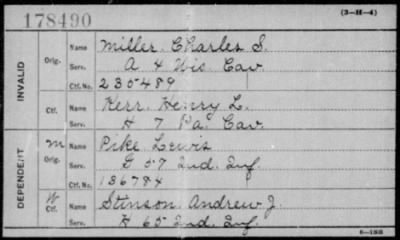 178490
(3—H—4)
INVALID
Orig.
Name Miller Charles S.
Serv. A 4 Wis Cav.
Ctf. No. 235489
Ctf.
Name Kerr. Henry L.
Serv. H 7 Pa. Cav.
DEPENDENT
M Orig.
Name Pike Lewis
Serv. G 57 Ind. Inf.
Ctf. No. 136784
W Ctf.
Name Stinson Andrew J.
Serv. K 65 Ind. Inf.